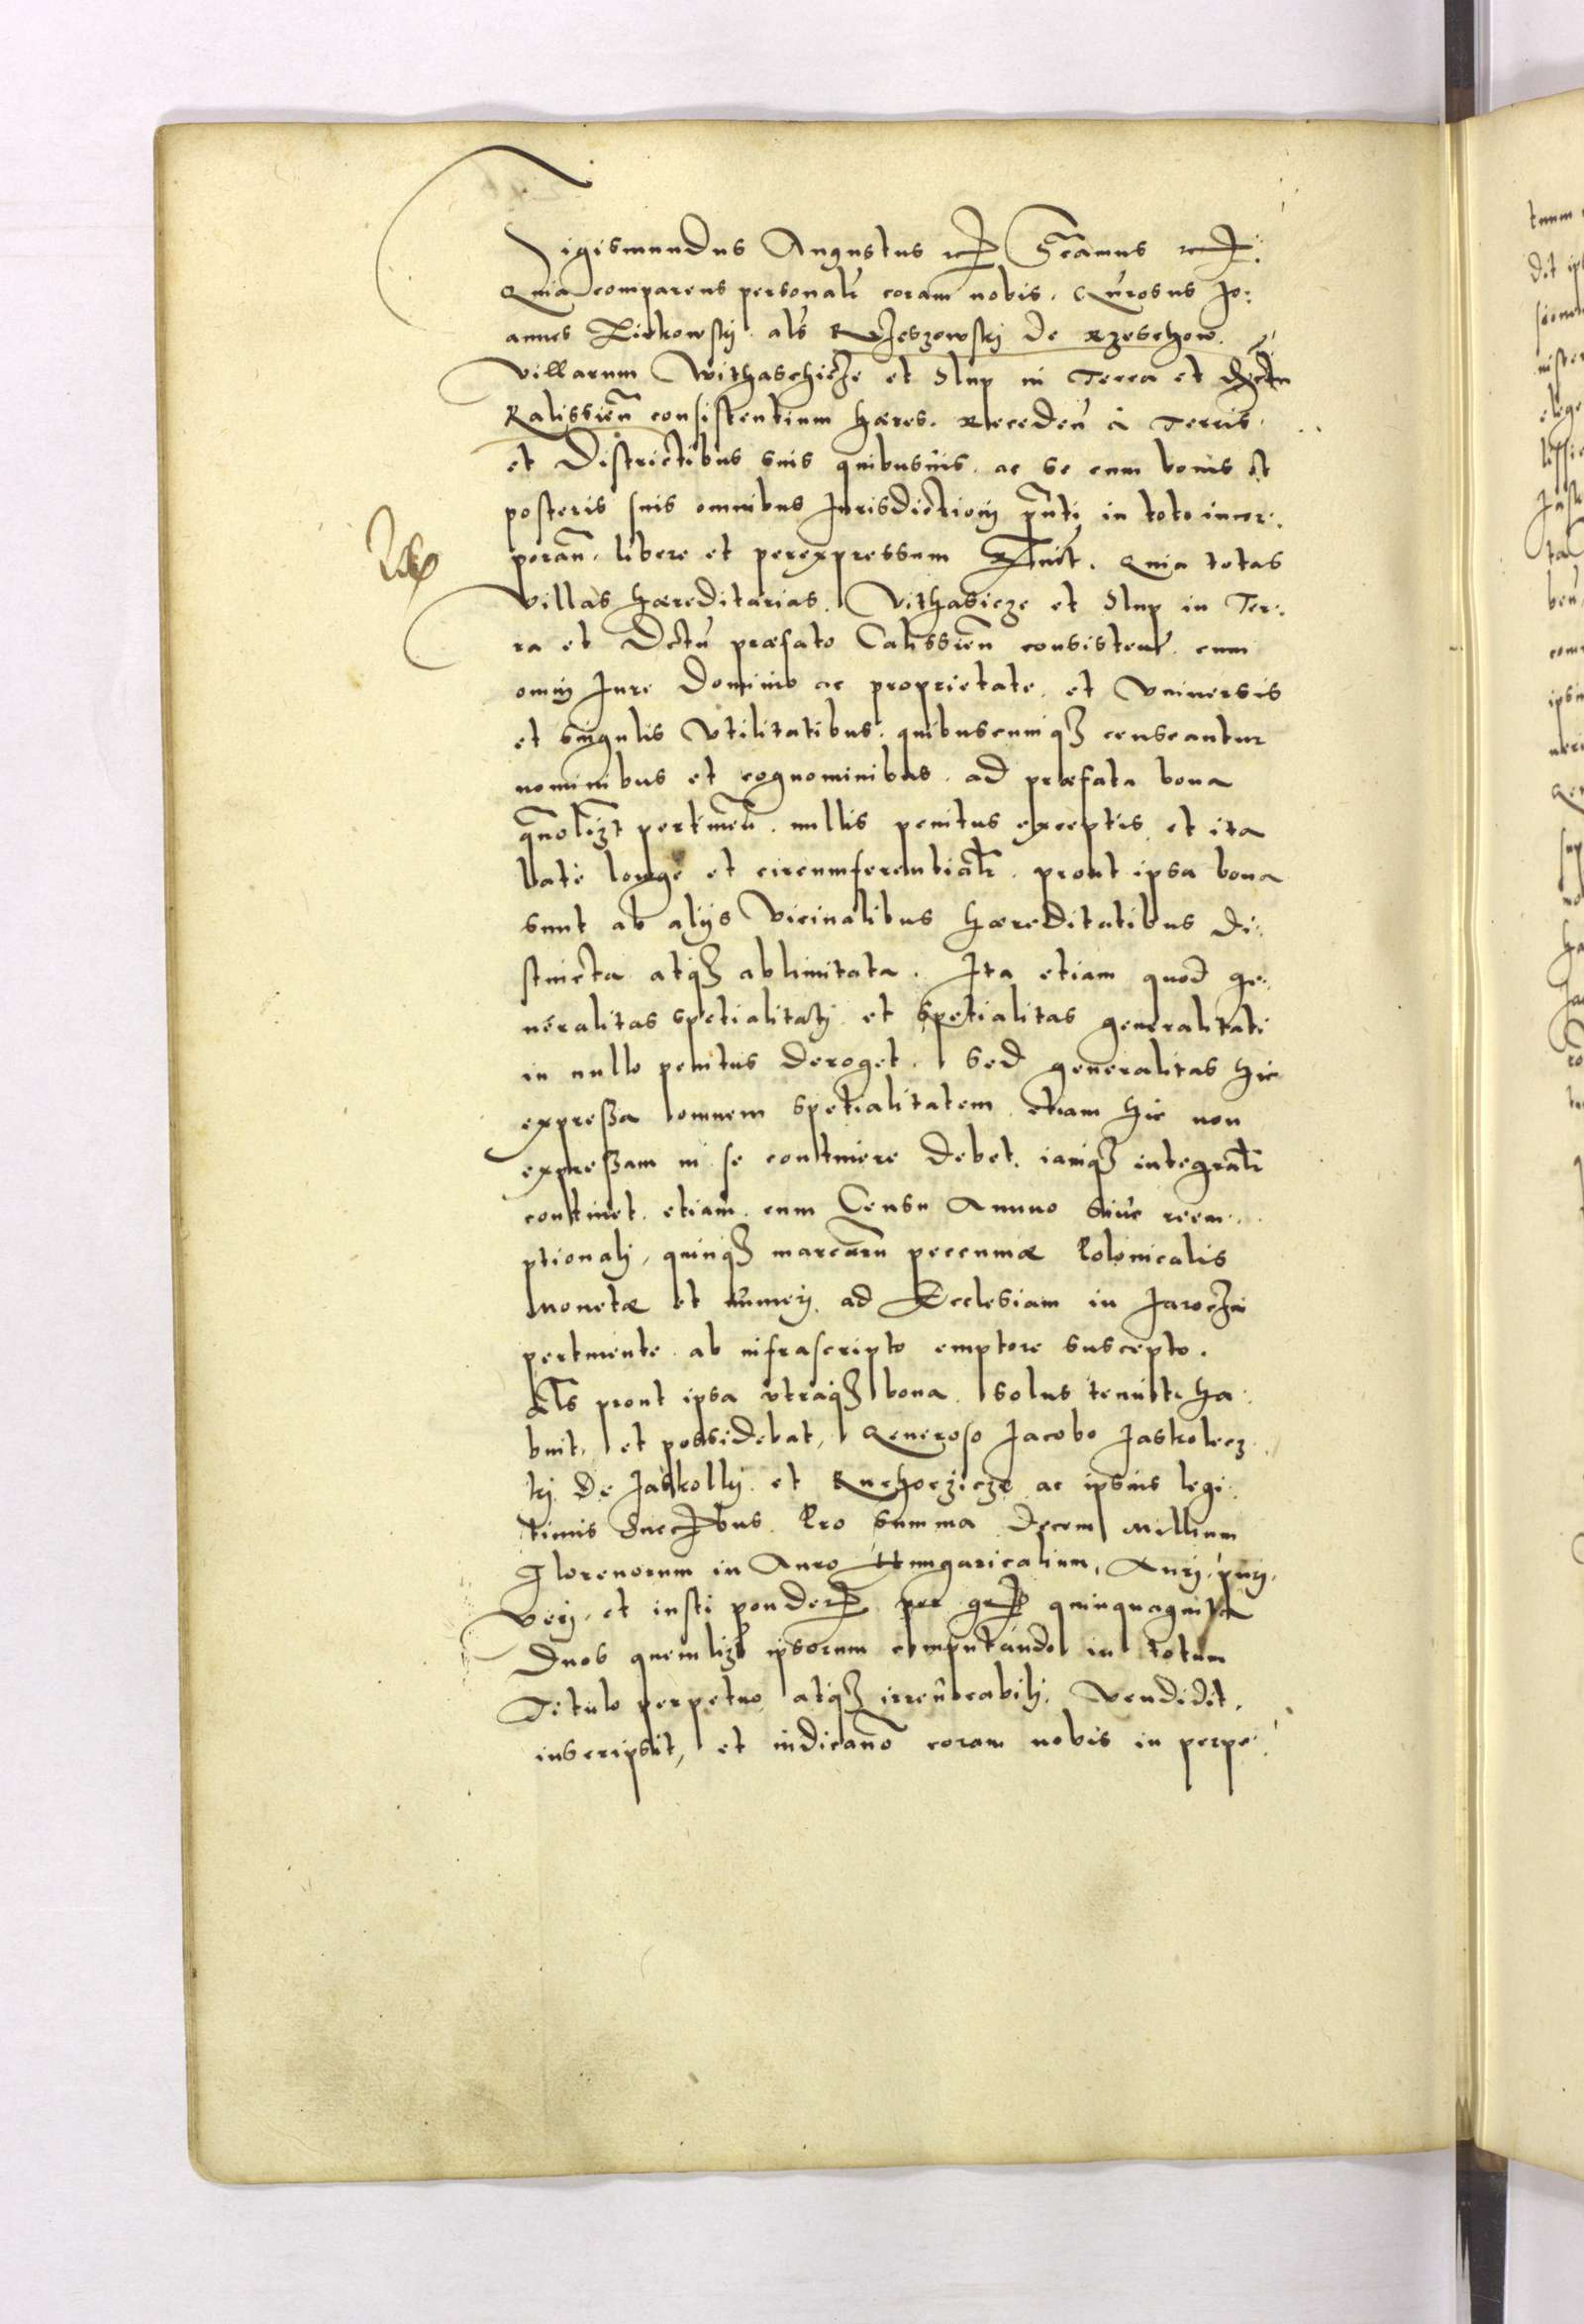 Sigismundus Augustus etc. Sca͂mus etc.
Quia comparens personalr coram nobis. Gn̄rosus Jo:
annes Zirkowskÿ als Rzeszowskÿ de Rzeschow.
villarum Withaschicze et Slup in Terra et Dictu
Kalissieñ consistentium hæres. Recedeñ à Terris
et Districtibus suis quibusuis. ac se cum bonis et
posteris suis omnibus Jurisdictionÿ pñti in toto incor:
porañ. libere et per expressum recognouit. Quia totas
villas hæreditarias. Vithasicze et Slup in Ter:
ra et Dctu præfato Calissieñ consisteñt cum
omnÿ Jure Dominio ac proprietate. et vniuersis
et singulis vtilitatibus. quibuscumqȝ censeantur
nominibus et cognominibus. ad præfata bona
qñolizt pertineñ. nullis penitus exceptis et ita
late longe et circumferentialr. prout ipsa bona
sunt ab alÿs vicinalibus hæreditatibus di:
stincta atqȝ ablimitata. Ita etiam quod ge:
neralitas spetialitatÿ et spetialitas generalitati
in nullo penitus deroget. Sed generalitas hic
expressa omnem spetialitatem etiam hic non
expressam in se continere debet. iamqȝ integralr
continet. etiam cum Censu Annuo siue reem:
ptionalÿ, quinqȝ marcaru pecuniæ Polonicalis
Monetæ et numerÿ. ad Ecclesiam in Jaroczin
pertinente ab infrascripto emptore suscepto.
Als prout ipsa vtraqȝ bona. solus tenuit ha:
buit, et possidebat, Generoso Jacobo Jaskolecz
kÿ de Jaskolkÿ et Kuchoczicze ac ipsius legi:
timis Succrbus. Pro summa Decem Millium
Florenorum in Auro Hungaricalium, Aurÿ, purÿ,
verÿ, et iusti ponderis per gr. quinquaginta
Duos quemlizt ipsorum computando in totum
Titulo perpetuo atqȝ irreuocabilÿ. Vendidit.
inscripsit, et in dicañō coram nobis in perpe: